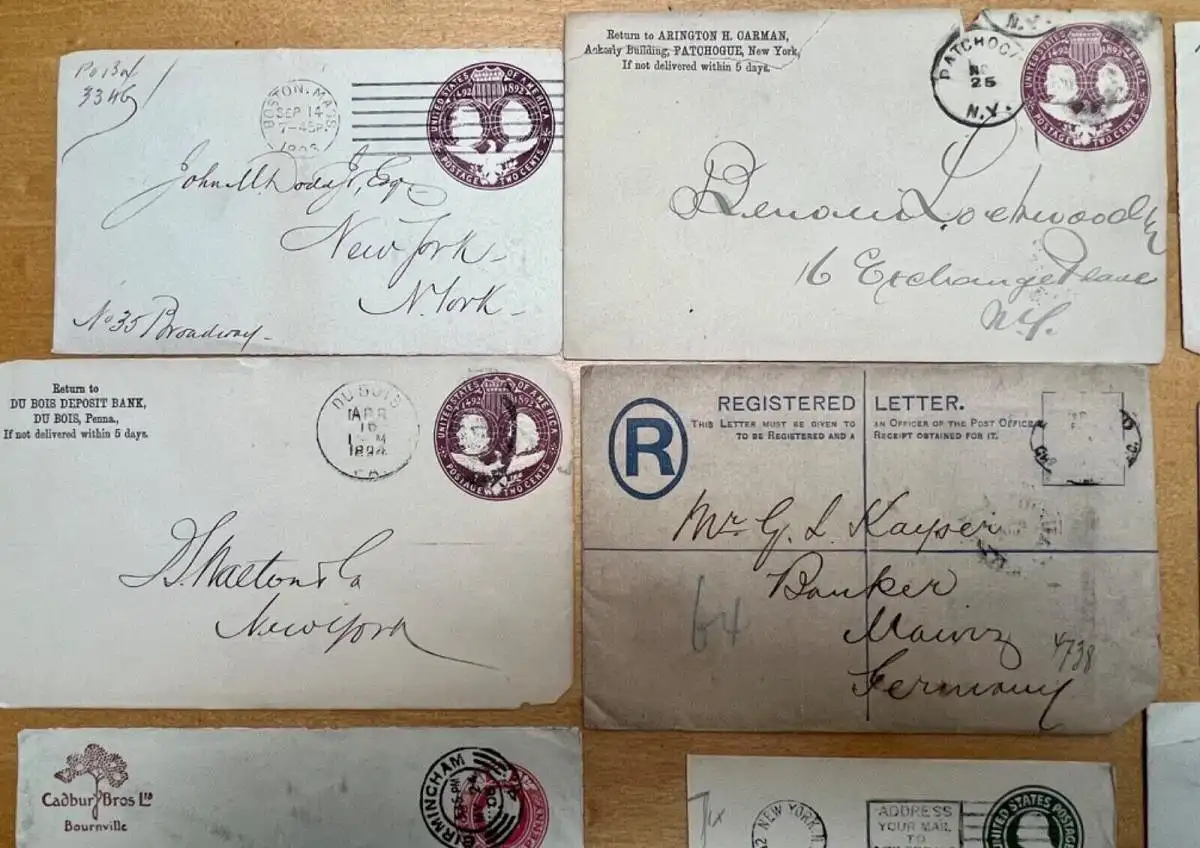 PO Box
3346
BOSTON, MASS.
SEP 14
7-45P.
UNITED STATES OF AMERICA
1492 1892
POSTAGE TWO CENTS
John M. Dodd Jr, Esq
New York
N. York
No 35 Broadway
Return to ARINGTON H. CARMAN,
Ackerly Building, PATCHOGUE, New York,
If not delivered within 5 days.
N.Y.
PATCHOG
25
N.Y.
UNITED STATES OF AMERICA
1492 1892
POSTAGE TWO CENTS
Benoni Lockwood
16 Exchange Place
N.Y.
Return to
DU BOIS DEPOSIT BANK,
DU BOIS, Penna,
If not delivered within 5 days.
DU BOIS
APR
16
M
1894
PA.
UNITED STATES OF AMERICA
1492 1892
POSTAGE TWO CENTS
Walton & Co
New York
REGISTERED LETTER.
THIS LETTER MUST BE GIVEN TO AN OFFICER OF THE POST OFFICE
TO BE REGISTERED AND A RECEIPT OBTAINED FOR IT.
R
Mr G. L. Kayser
Banker
Mainz
Germany
64
4738
Cadbury Bros Ltd
Bournville
BIRMINGHAM
NEW YORK, N.
ADDRESS
YOUR MAIL
TO
UNITED STATES POSTAGE